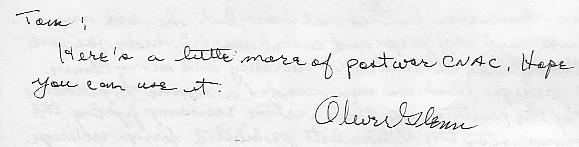 Tom:
Here's a little more of postwar CNAC. Hope
you can use it.
Oliver Glenn